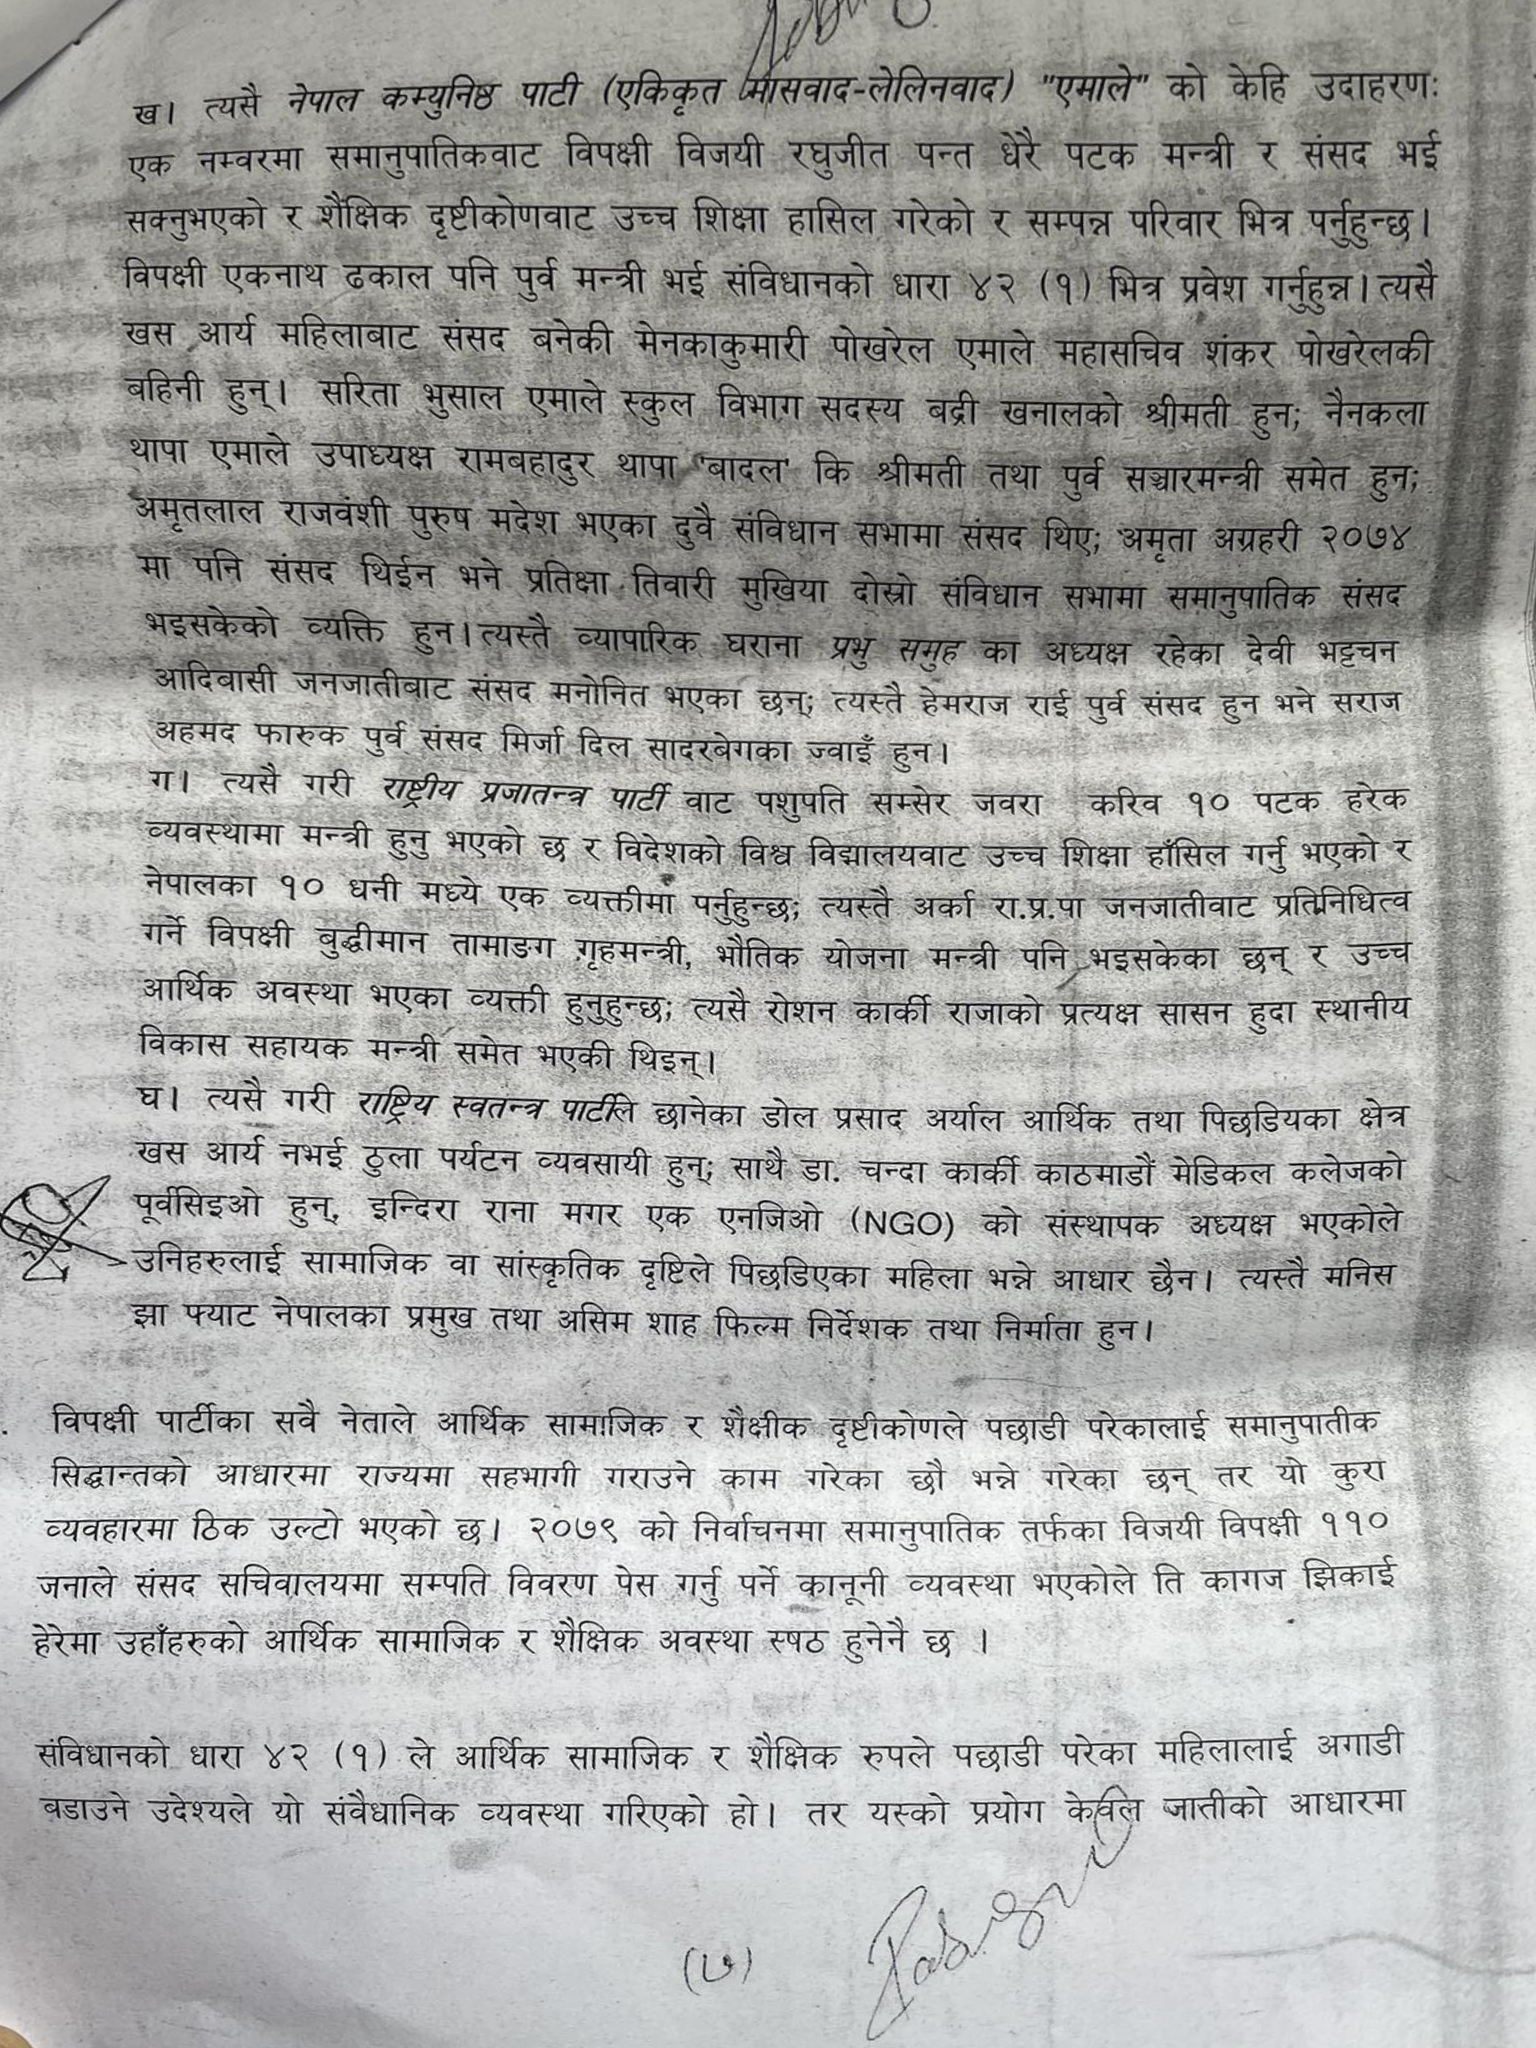 ख। त्यसै नेपाल कम्युनिष्ठ पाटी (एकिकृत मासवाद-लेलिनवाद) "एमाले" को केहि उदाहरणः
एक नम्वरमा समानुपातिकवाट विपक्षी विजयी रघुजीत पन्त धेरै पटक मन्त्री र संसद भई
सक्नुभएको र शैक्षिक दृष्टीकोणवाट उच्च शिक्षा हासिल गरेको र सम्पन्न परिवार भित्र पर्नुहुन्छ।
विपक्षी एकनाथ ढकाल पनि पुर्व मन्त्री भई संविधानको धारा ४२ (१) भित्र प्रवेश गर्नुहुन्न। त्यसै
खस आर्य महिलाबाट संसद बनेकी मेनकाकुमारी पोखरेल एमाले महासचिव शंकर पोखरेलकी
बहिनी हुन्। सरिता भुसाल एमाले स्कुल विभाग सदस्य बद्री खनालको श्रीमती हुन; नैनकला
थापा एमाले उपाध्यक्ष रामबहादुर थापा 'बादल' कि श्रीमती तथा पुर्व सञ्चारमन्त्री समेत हुन;
अमृतलाल राजवंशी पुरुष मदेश भएका दुवै संविधान सभामा संसद थिए; अमृता अग्रहरी २०७४
मा पनि संसद थिईन भने प्रतिक्षा तिवारी मुखिया दोस्रो संविधान सभामा समानुपातिक संसद
भइसकेको व्यक्ति हुन। त्यस्तै व्यापारिक घराना प्रभु समुह का अध्यक्ष रहेका देवी भट्टचन
आदिबासी जनजातीवाट संसद मनोनित भएका छन्; त्यस्तै हेमराज राई पुर्व संसद हुन भने सराज
अहमद फारुक पुर्व संसद मिर्जा दिल सादरबेगका ज्वाइँ हुन।
ग। त्यसै गरी राष्ट्रीय प्रजातन्त्र पार्टी वाट पशुपति सम्सेर जवरा करिव १० पटक हरेक
व्यवस्थामा मन्त्री हुनु भएको छ र विदेशको विश्व विद्यालयवाट उच्च शिक्षा हाँसिल गर्नु भएको र
नेपालका १० धनी मध्ये एक व्यक्तीमा पर्नुहुन्छ; त्यस्तै अर्का रा.प्र.पा जनजातीवाट प्रतिनिधित्व
गर्ने विपक्षी बुद्धीमान तामाङग गृहमन्त्री, भौतिक योजना मन्त्री पनि भइसकेका छन् र उच्च
आर्थिक अवस्था भएका व्यक्ती हुनुहुन्छ; त्यसै रोशन कार्की राजाको प्रत्यक्ष सासन हुदा स्थानीय
विकास सहायक मन्त्री समेत भएकी थिइन्।
घ। त्यसै गरी राष्ट्रिय स्वतन्त्र पार्टीले छानेका डोल प्रसाद अर्याल आर्थिक तथा पिछडियका क्षेत्र
खस आर्य नभई ठुला पर्यटन व्यवसायी हुन्; साथै डा. चन्दा कार्की काठमाडौं मेडिकल कलेजको
पूर्वसिइओ हुन्, इन्दिरा राना मगर एक एनजिओ (NGO) को संस्थापक अध्यक्ष भएकोले
उनिहरुलाई सामाजिक वा सांस्कृतिक दृष्टिले पिछडिएका महिला भन्ने आधार छैन। त्यस्तै मनिस
झा फ्याट नेपालका प्रमुख तथा असिम शाह फिल्म निर्देशक तथा निर्माता हुन।
विपक्षी पार्टीका सवै नेताले आर्थिक सामाजिक र शैक्षीक दृष्टीकोणले पछाडी परेकालाई समानुपातीक
सिद्धान्तको आधारमा राज्यमा सहभागी गराउने काम गरेका छौ भन्ने गरेका छन् तर यो कुरा
व्यवहारमा ठिक उल्टो भएको छ। २०७९ को निर्वाचनमा समानुपातिक तर्फका विजयी विपक्षी ११०
जनाले संसद सचिवालयमा सम्पति विवरण पेस गर्नु पर्ने कानूनी व्यवस्था भएकोले ति कागज झिकाई
हेरेमा उहाँहरुको आर्थिक सामाजिक र शैक्षिक अवस्था स्षठ हुनेनै छ ।
संविधानको धारा ४२ (१) ले आर्थिक सामाजिक र शैक्षिक रुपले पछाडी परेका महिलालाई अगाडी
बडाउने उदेश्यले यो संवैधानिक व्यवस्था गरिएको हो। तर यस्को प्रयोग केवल जातीको आधारमा
(७)